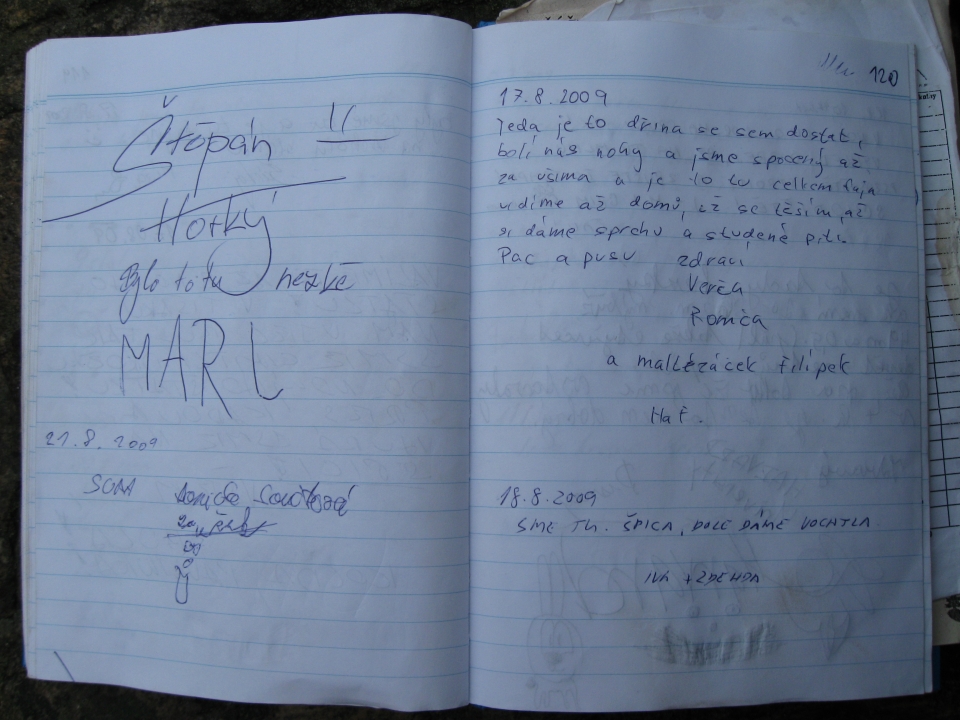 Štěpán II
Horký
Bylo to tu hezké
MARL
21.8.2009
120
17.8.2009
Teda je to dřina se sem dostat,
bolí nás nohy a jsme spocený až
za ušima a je to tu celkem fuja
až domů, až se těším, až
si dáme sprchu a studené pití.
Pac a pusu zdraví
Verča
Romča
a Filípek
Haf.
18.8.2009
SME TU. ŠPICA, DOLE DÁME VOCHTLA
IVA + ZDENDA